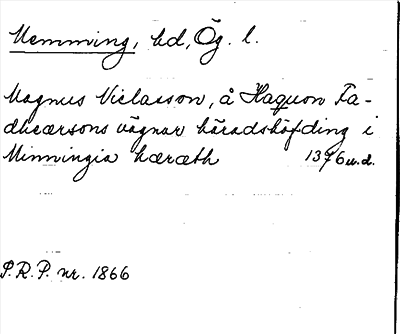 Memming, hd, Ög. l.
Magnus Niclasson, å Haquon Fa-
dhersons vägnar häradshöfding i
Minningia hæræth 1376 u.d.
P.R.P. nr. 1866